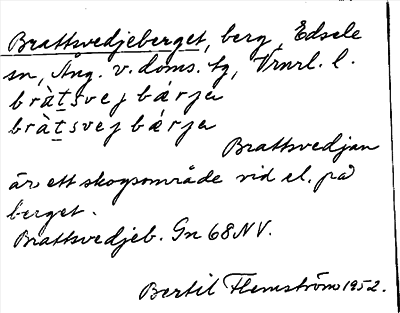 Brattsvedjeberget, berg, Edsele
sn, Ång. v. doms. tg, Vrnrl. l.
bràt̲svej bǽrja
bràt̲svej bǽrja
Brattsvedjan
är ett skogsområde vid el. på
berget.
Brattsvedjeb. Gn 68 NV.
Bertil Flemström 1952.